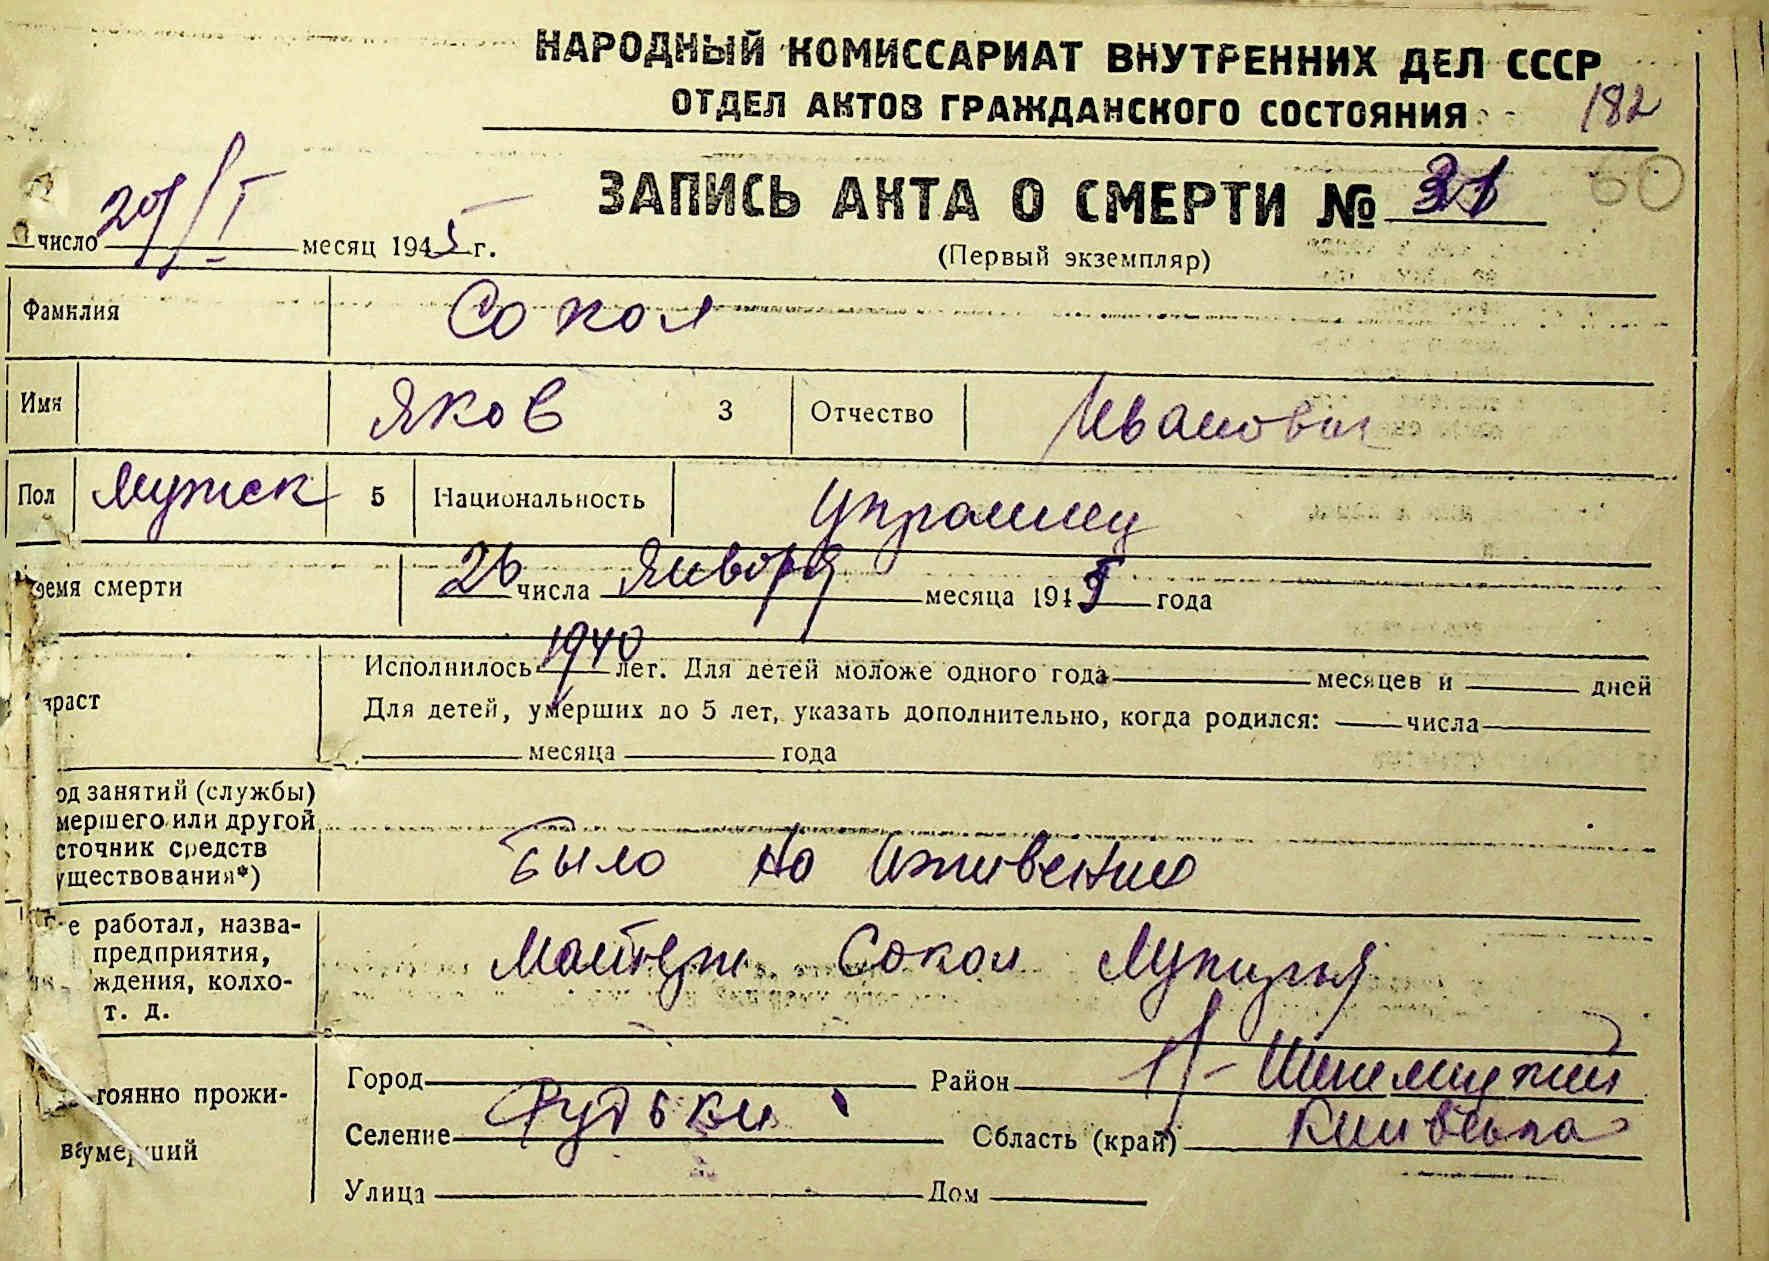 НАРОДНЫЙ КОМИССАРИАТ ВНУТРЕННИХ ДЕЛ СССР
ОТДЕЛ АКТОВ ГРАЖДАНСКОГО СОСТОЯНИЯ 182
ЗАПИСЬ АКТА О СМЕРТИ № 31 60
число 29/I месяц 1945 г. (Первый экземпляр)
Фамилия Сокол
Имя Яков 3 Отчество Иванович
Пол Мужск 5 Национальность Украинец
ремя смерти 26 числа Января месяца 1945 года
Исполнилось 1940 лет. Для детей моложе одного года месяцев и дней
зраст Для детей, умерших до 5 лет, указать дополнительно, когда родился: числа
месяца года
од занятий (службы)
мершего или другой
сточник средств
уществования*) Было на Иживению
е работал, назва-
предприятия,
ждения, колхо-
т. д. Матери Сокол
тоянно прожи-
умерший
Город Район
Селение Рудьки Область (край) Киивська
Улица Дом